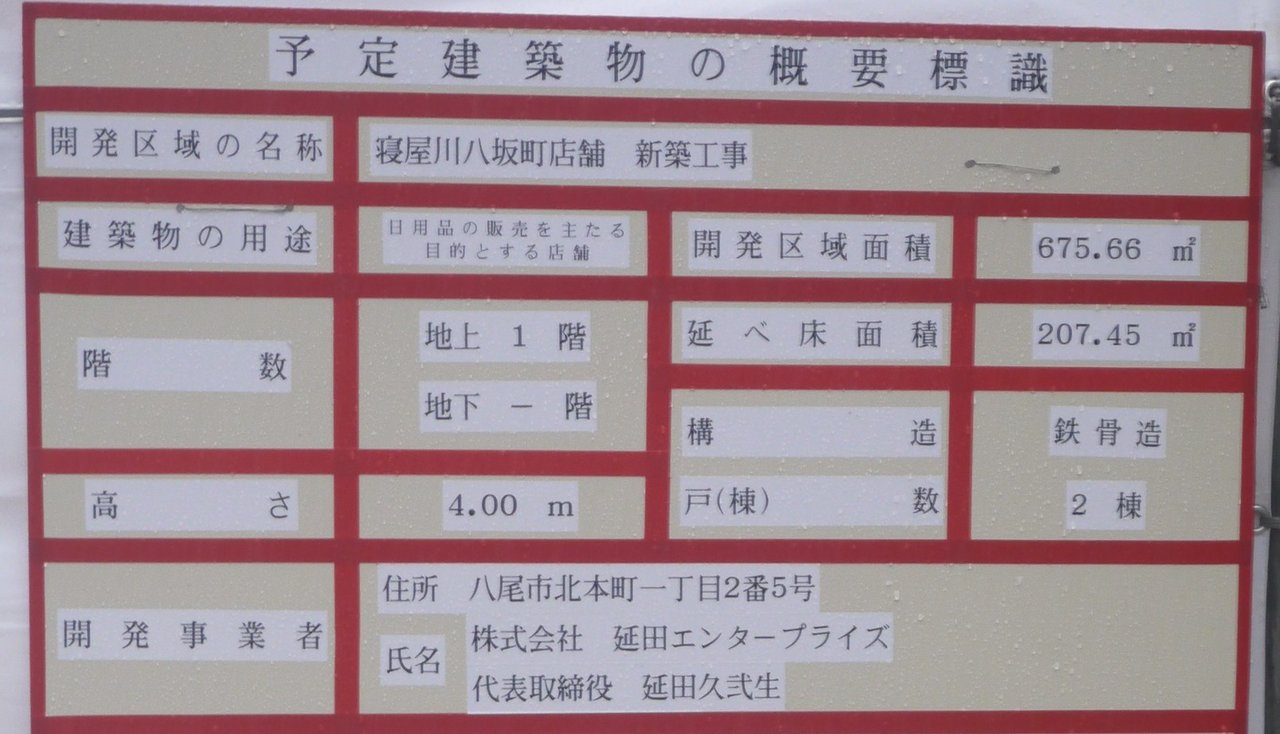 予定建築物の概要標識
開発区域の名称
寝屋川八坂町店舗 新築工事
建築物の用途
日用品の販売を主たる
目的とする店舗
開発区域面積
675.66 ㎡
階数
地上 1 階
地下 － 階
延べ床面積
207.45 ㎡
構造
鉄骨造
高さ
4.00 m
戸(棟)数
2 棟
開発事業者
住所 八尾市北本町一丁目2番5号
氏名
株式会社 延田エンタープライズ
代表取締役 延田久弐生